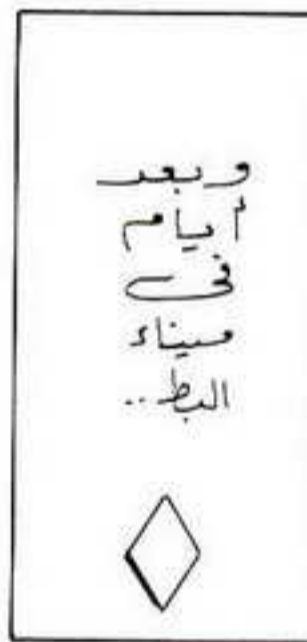 وبعد
أيام
فى
ميناء
البط..